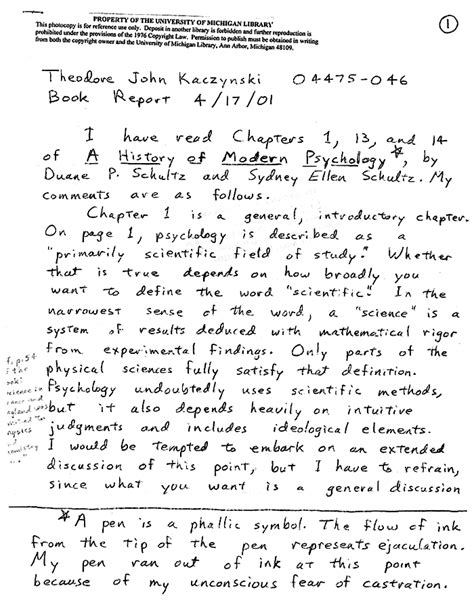 PROPERTY OF THE UNIVERSITY OF MICHIGAN LIBRARY
This photocopy is for reference use only. Deposit in another library is forbidden and further reproduction is
prohibited under the provisions of the 1976 Copyright Law. Permission to publish must be obtained in writing
from both the copyright owner and the University of Michigan Library, Ann Arbor, Michigan 48109.
1
Theodore John Kaczynski 04475-046
Book Report 4/17/01
I have read Chapters 1, 13, and 14
of A History of Modern Psychology*, by
Duane P. Schultz and Sydney Ellen Schultz. My
comments are as follows.
Chapter 1 is a general, introductory chapter.
On page 1, psychology is described as a
"primarily scientific field of study." Whether
that is true depends on how broadly you
want to define the word "scientific." In the
narrowest sense of the word, a "science" is a
system of results deduced with mathematical rigor
from experimental findings. Only parts of the
physical sciences fully satisfy that definition.
Psychology undoubtedly uses scientific methods,
but it also depends heavily on intuitive
judgments and includes ideological elements.
I would be tempted to embark on an extended
discussion of this point, but I have to refrain,
since what you want is a general discussion
* A pen is a phallic symbol. The flow of ink
from the tip of the pen represents ejaculation.
My pen ran out of ink at this point
because of my unconscious fear of castration.